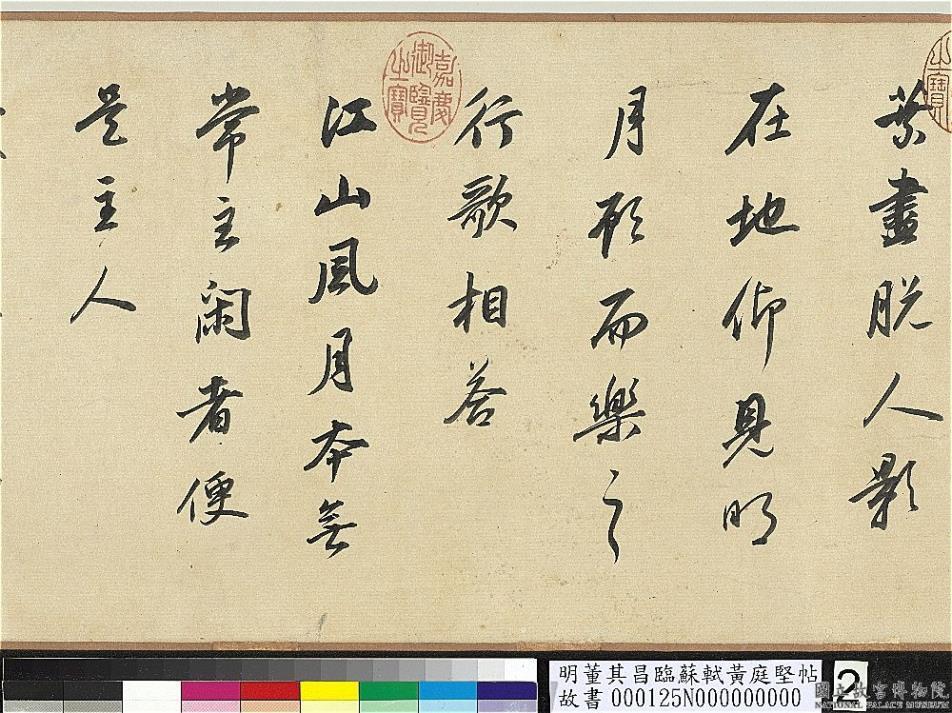 葉盡脫人影
在地仰見明
月顧而樂之
行歌相答
江山風月本無
常主閑者便
是主人
嘉慶御覽之寶
之寶
明董其昌臨蘇軾黃庭堅帖
故書 000125N000000000
2
國立故宮博物院
NATIONAL PALACE MUSEUM